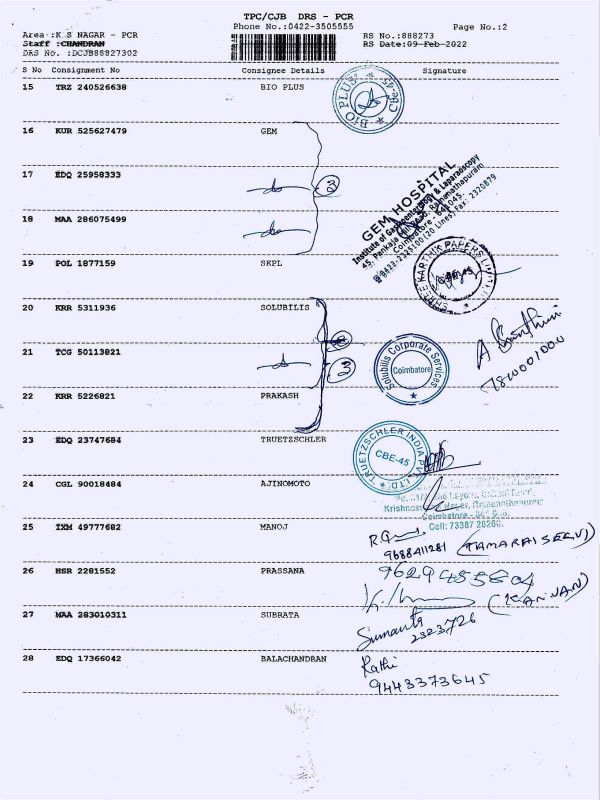 TPC/CJB DRS - PCR
Phone No.:0422-3505555
Page No.:2
Area :K.S NAGAR - PCR
RS No.:888273
Staff :CHANDRAN
RS Date:09 Feb 2022
DRS No. :DCJB88827302
S No Consignment No Consignee Details Signature
15 TRZ 240526638 BIO PLUS
BIO PLUS
Cbe-45
16 KUR 525627479 GEM
17 EDQ 25958333
3
GEM HOSPITAL
Institute of Gastroenterology & Laparoscopy
45, Pankaja Mill Road, Ramanathapuram
Coimbatore - 641 045.
0422-2325100 (20 Lines) Fax: 2320879
18 MAA 286075499
19 POL 1877159 SKPL
SHREE KARTHIK PAPERS LIMITED
20 KRR 5311936 SOLUBILIS
21 TCG 50113821
3
Solubilis Corporate Services
Coimbatore
22 KRR 5226821 PRAKASH
23 EDQ 23747684 TRUETZSCHLER
TRUETZSCHLER INDIA PVT LTD
CBE-45
24 CGL 90018484 AJINOMOTO
Coimbatore
Cell: 73387 28260.
25 IXM 49777682 MANOJ
9688411281 (TAMARAISELVI)
26 HSR 2281552 PRASSANA
9629455804
(KANNAN)
27 MAA 283010311 SUBRATA
Sumanta
2323726
28 EDQ 17366042 BALACHANDRAN
Rathi
9443373645